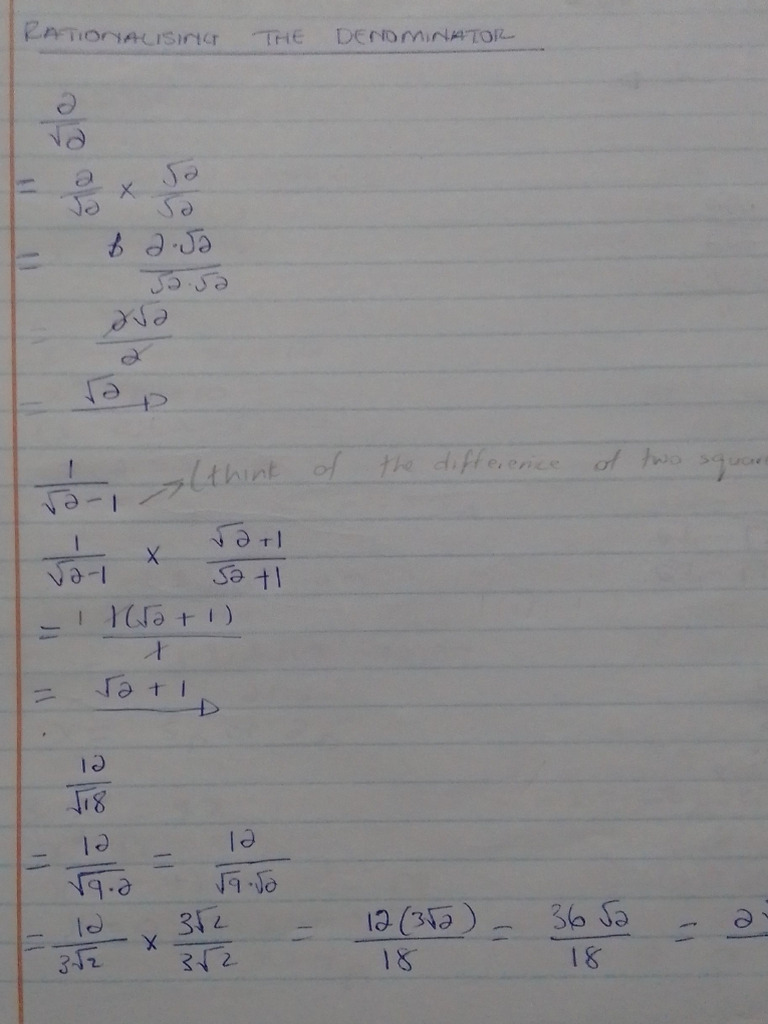 RATIONALISING THE DENOMINATOR
2/√2
= 2/√2 × √2/√2
= 2·√2/√2·√2
= 2√2/2
= √2
1/√2-1 → (think of the difference of two squar
1/√2-1 × √2+1/√2+1
= 1 1(√2+1)/1
= √2+1
12/√18
= 12/√9·2 = 12/√9·√2
= 12/3√2 × 3√2/3√2 = 12(3√2)/18 = 36√2/18 = 2√